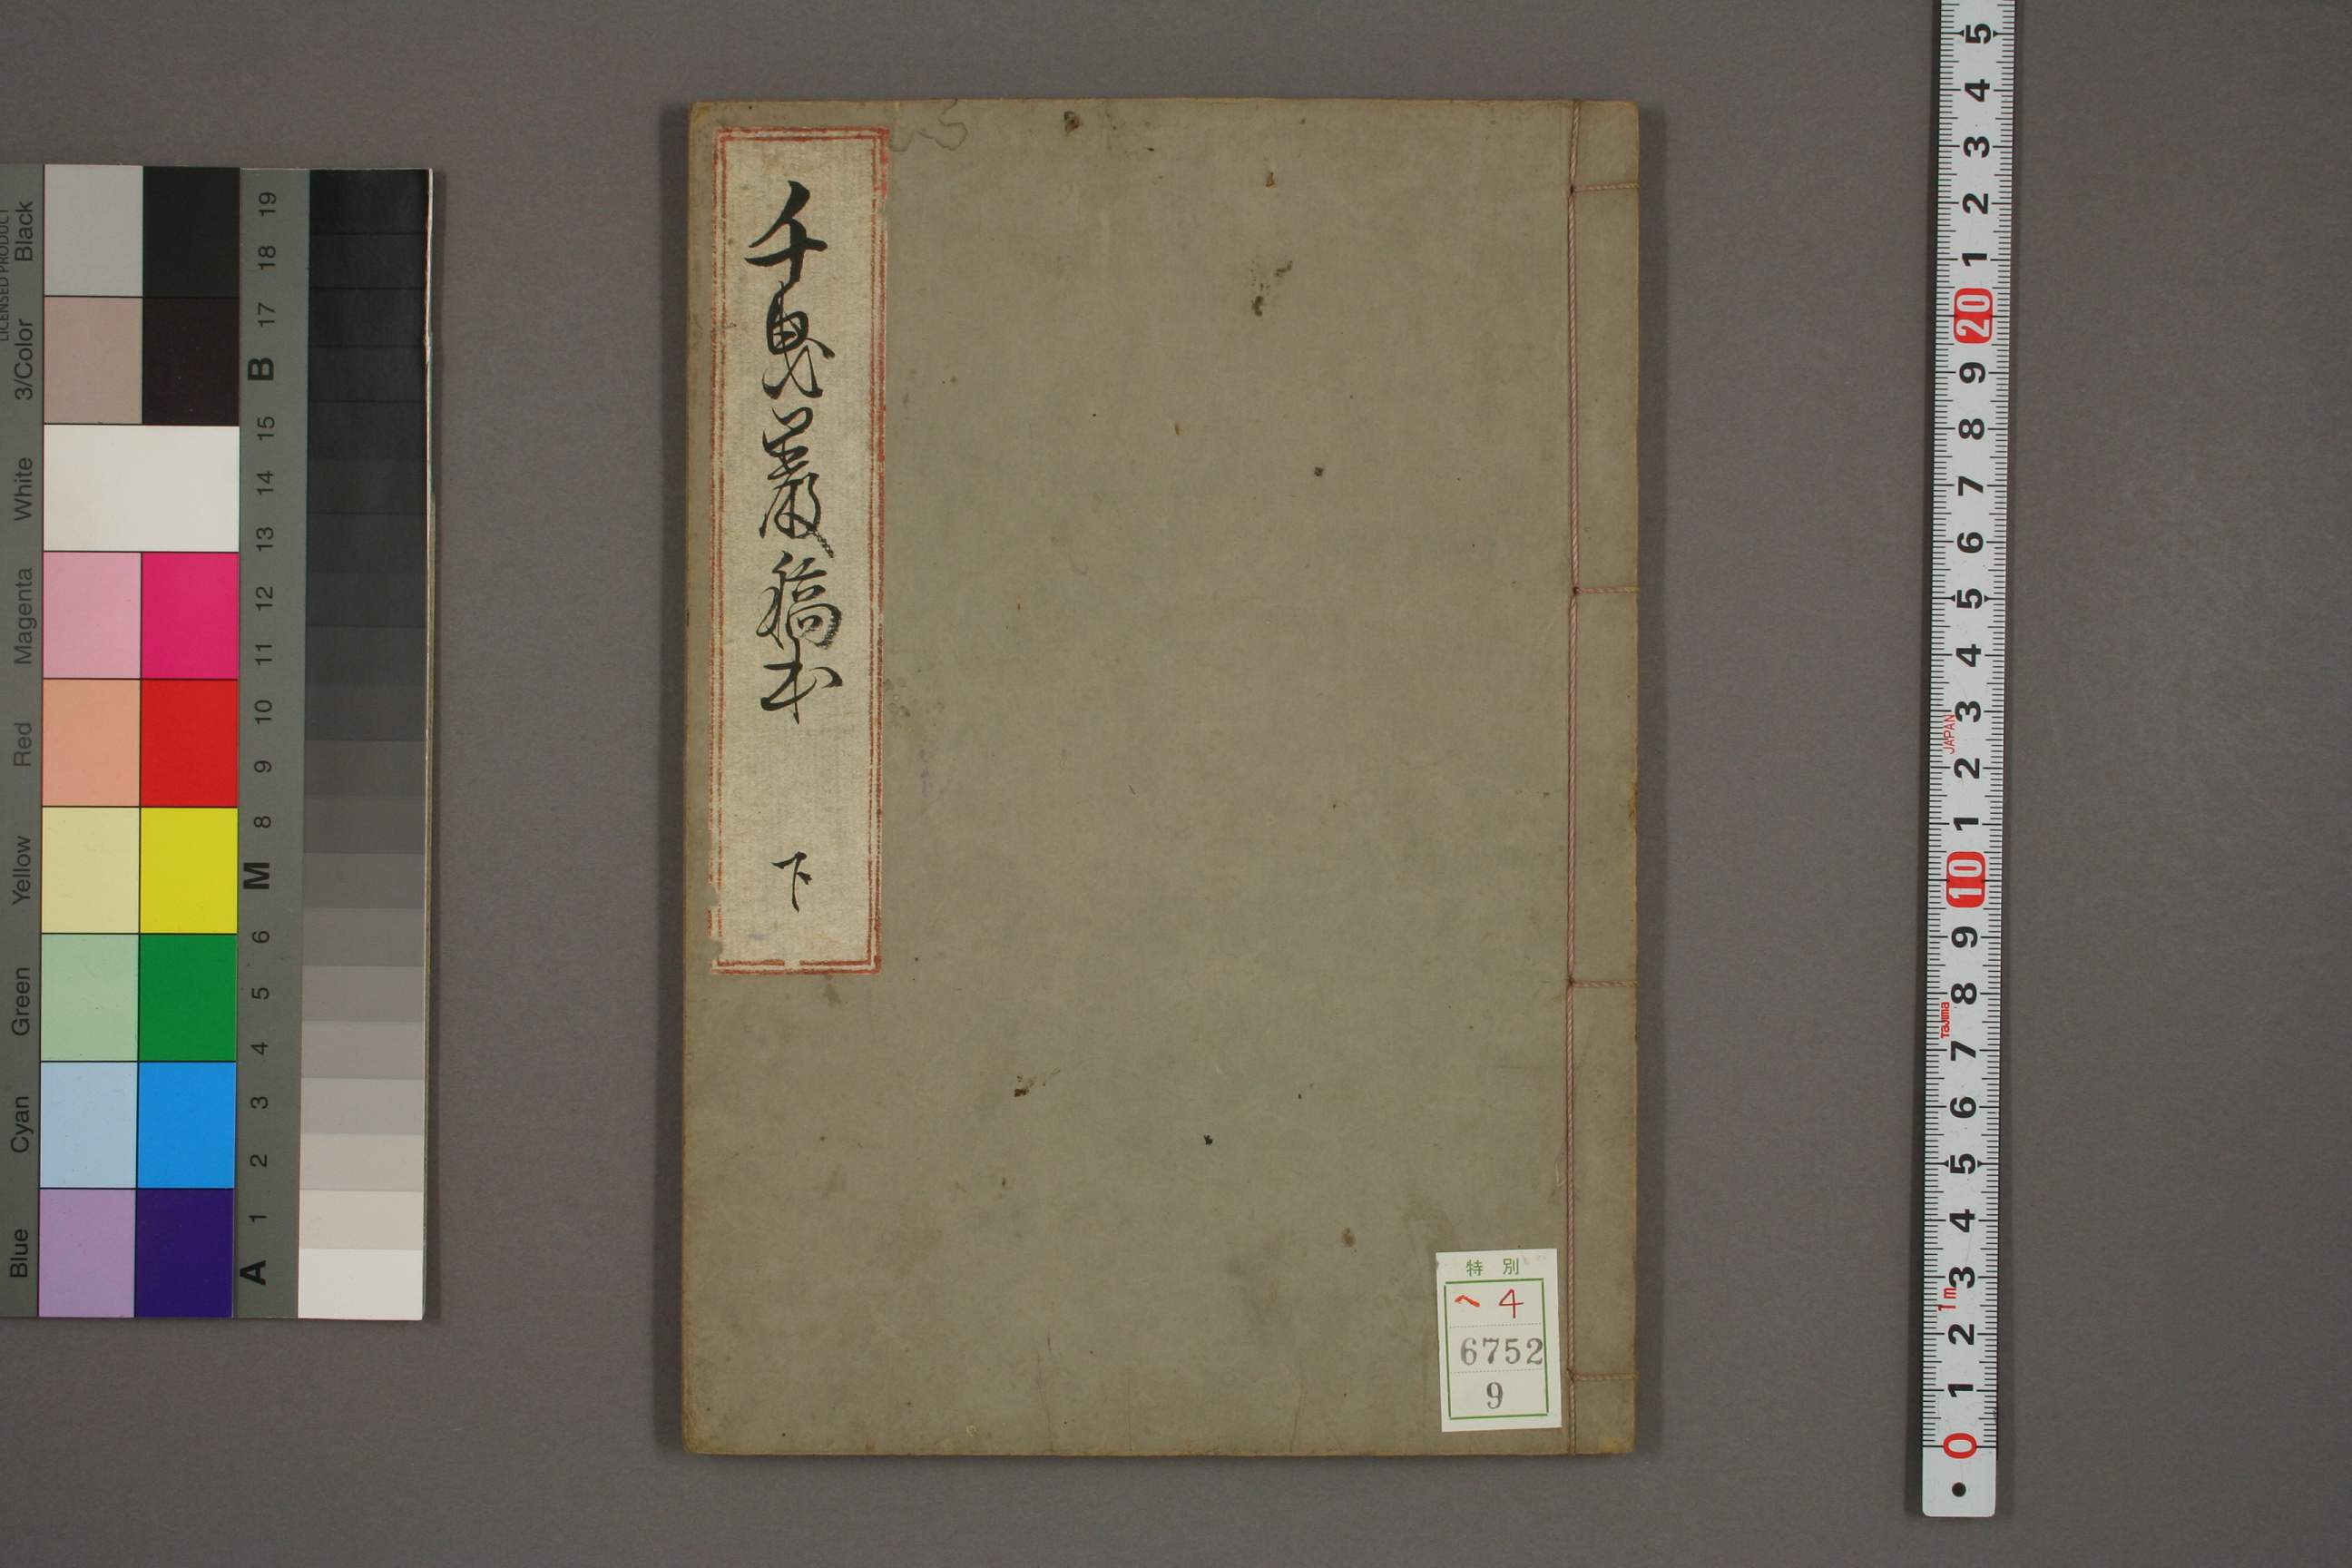 千曳稿本
下
特別
ヘ 4
6752
9
LICENSED PRODUCT
Black
3/Color
White
Magenta
Red
Yellow
Green
Cyan
Blue
19
18
17
B
15
14
13
12
11
10
9
8
M
6
5
4
3
2
1
A
5
4
3
2
1
20
9
8
7
6
5
4
3
JAPAN
2
1
10
9
8
Tajima
7
6
5
4
3
1m
2
1
0